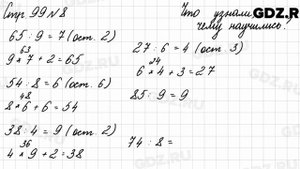 Стр 99 №8
Что узнали,
чему научились?
GDZ.R
65 : 9 = 7 (ост. 2)
63
9 * 7 + 2 = 65
54 : 8 = 6 (ост. 6)
48
8 * 6 + 6 = 54
38 : 4 = 9 (ост. 2)
36
4 * 9 + 2 = 38
27 : 6 = 4 (ост. 3)
24
6 * 4 + 3 = 27
85 : 9 = 9
74 : 8 =